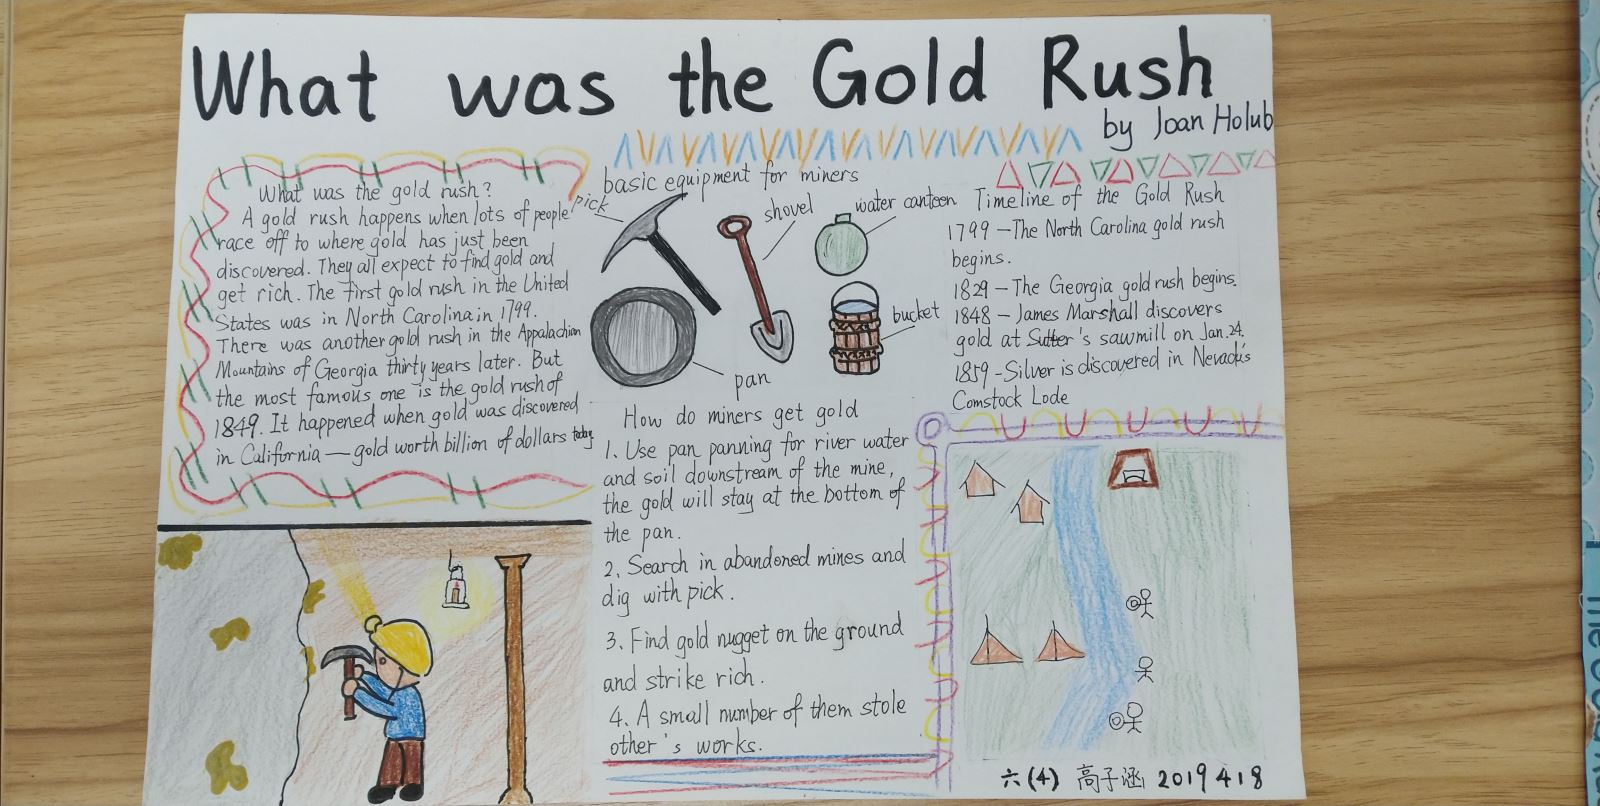 What was the Gold Rush
by Joan Holub
What was the gold rush?
A gold rush happens when lots of people
race off to where gold has just been
discovered. They all expect to find gold and
get rich. The first gold rush in the United
States was in North Carolina in 1799.
There was another gold rush in the Appalachian
Mountains of Georgia thirty years later. But
the most famous one is the gold rush of
1849. It happened when gold was discovered
in California — gold worth billion of dollars today
basic equipment for miners
pick
shovel
water canteen
bucket
pan
How do miners get gold
1. Use pan panning for river water
and soil downstream of the mine,
the gold will stay at the bottom of
the pan.
2. Search in abandoned mines and
dig with pick.
3. Find gold nugget on the ground
and strike rich.
4. A small number of them stole
other's works.
Timeline of the Gold Rush
1799 — The North Carolina gold rush
begins.
1829 — The Georgia gold rush begins.
1848 — James Marshall discovers
gold at Sutter's sawmill on Jan.24.
1859 - Silver is discovered in Nevada's
Comstock Lode
六(4) 高子涵 2019 4 18